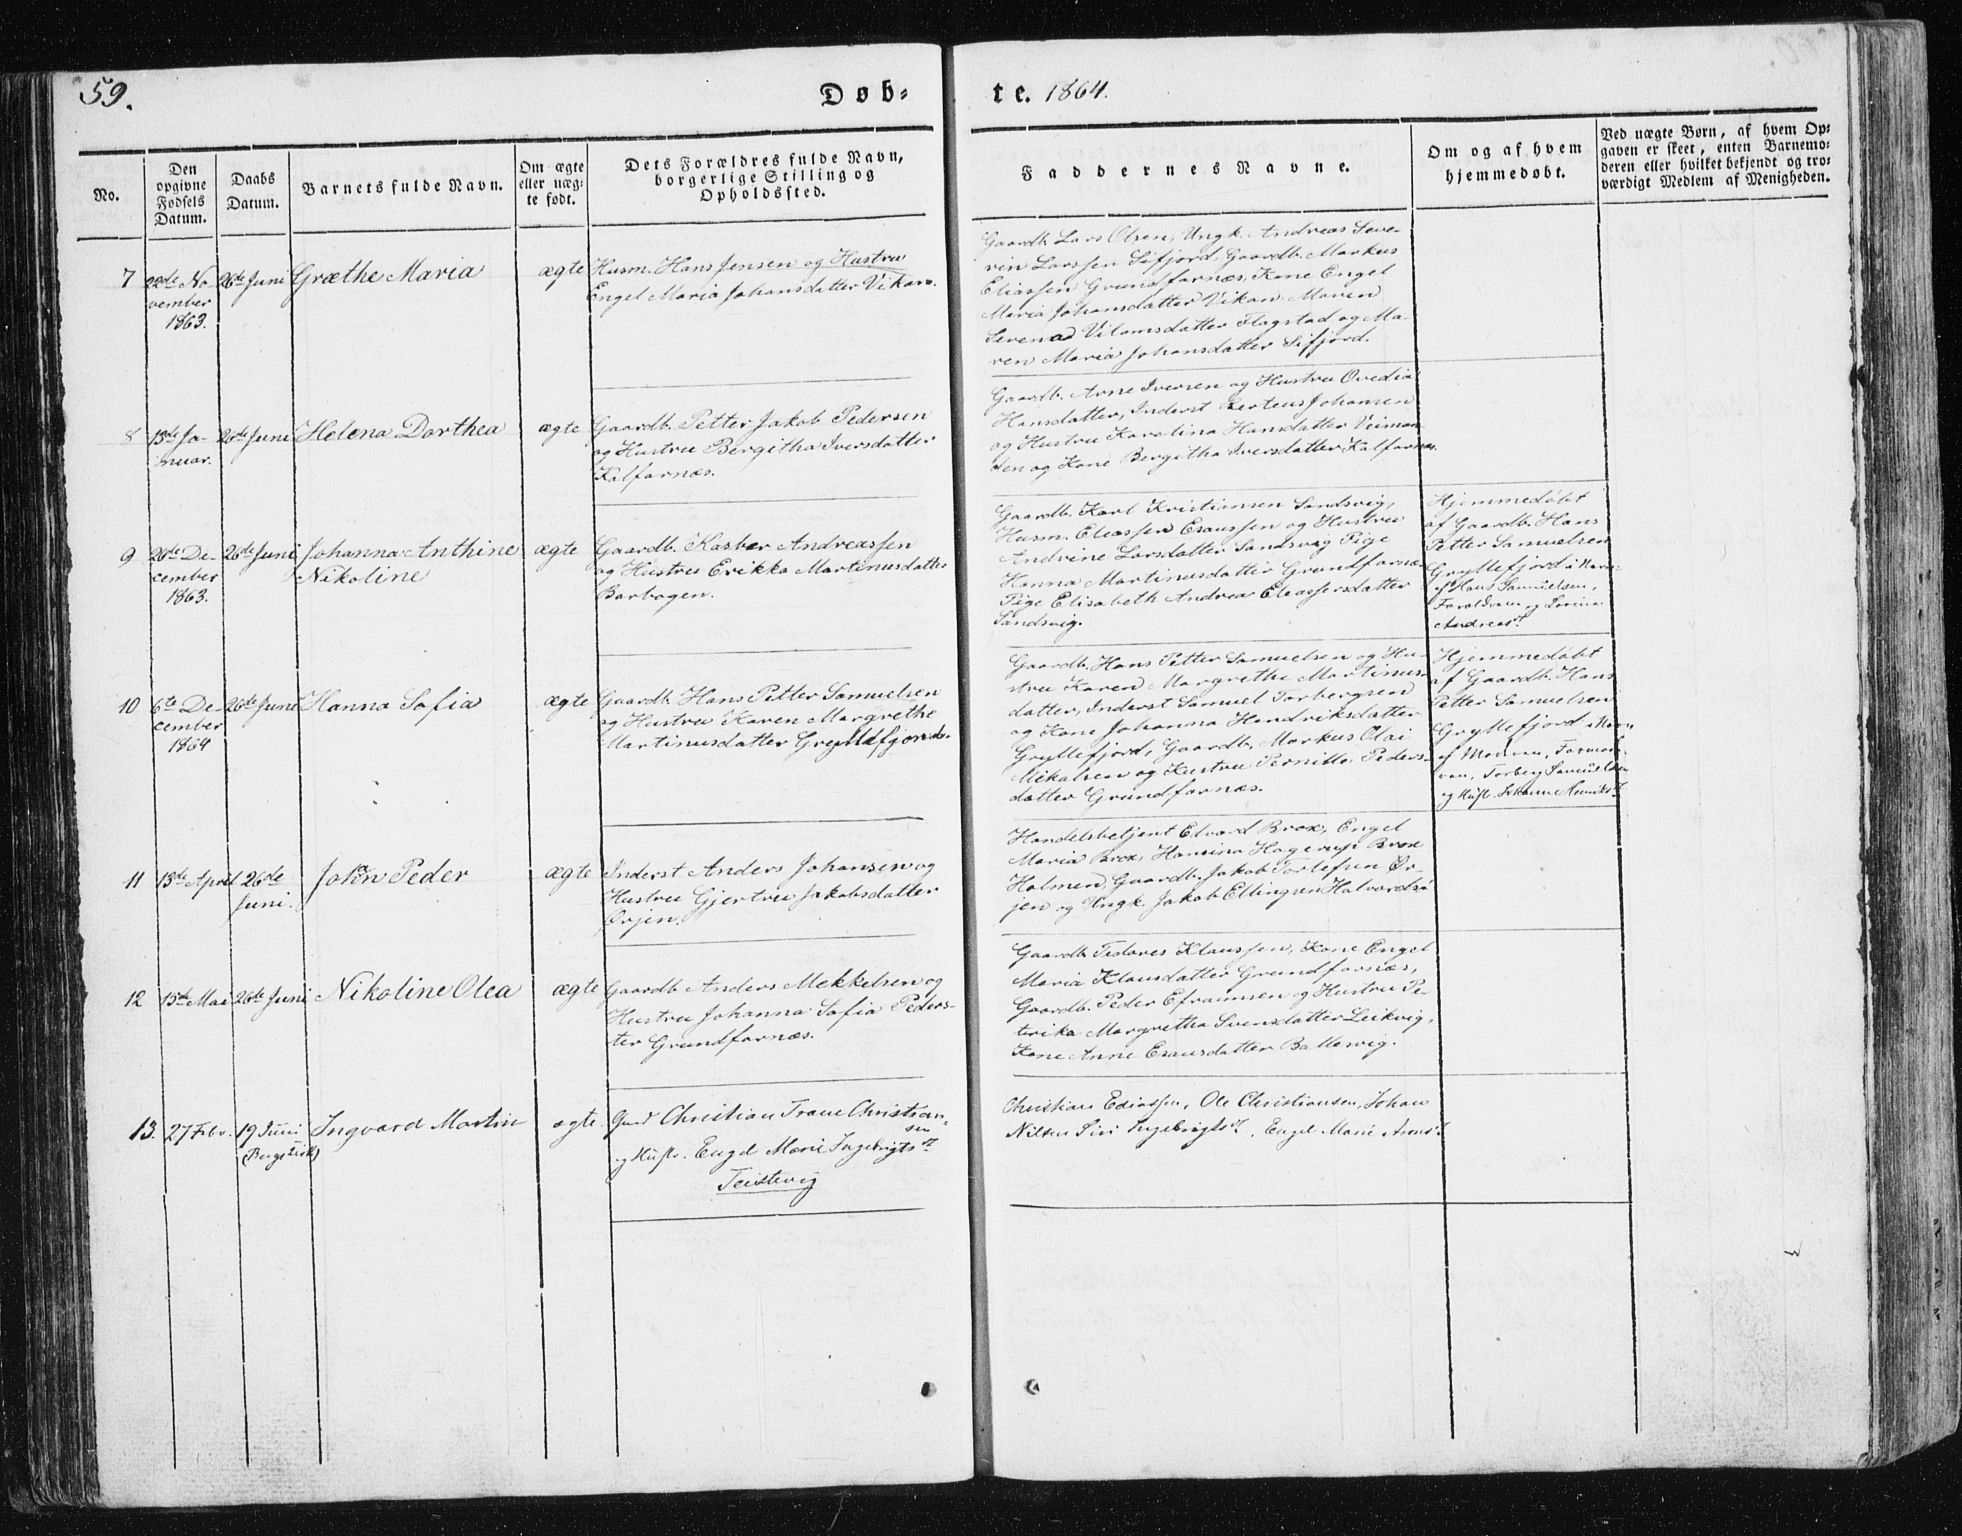 59.
Døb-
te. 1864.
No.
Den opgivne Fødsels Datum.
Daabs Datum.
Barnets fulde Navn.
Om ægte eller uægte født.
Dets Forældres fulde Navn, borgerlige Stilling og Opholdssted.
Faddernes Navne.
Om og af hvem hjemmedøbt.
Ved uægte Børn, af hvem Opgaven er skeet, enten Barnemoderen eller hvilket bekjendt og troværdigt Medlem af Menigheden.
7
22de No-
vember
1863.
26de Juni
Græthe Maria
ægte
Husm. Hans Jensen og Hustru
Engel Maria Johansdatter Vikan.
Gaardb. Lars Olsen, Ungk. Andreas Seve-
rin Larssen Sifjord, Gaardb. Markus
Eliassen Grundfarnæs, Kone Engel
Maria Johansdatter Vikan. Maren
Flagstad og Ma-
ren Maria Johansdatter Sifjord.
8
13de Ja-
nuar.
26de Juni
Helena Dorthea
ægte
Gaardb. Petter Jakob Pedersen
og Hustru Bergitha Iversdatter
Kalfarnæs.
Gaardb. Arne Iversen og Hustru Ovedia
Hansdatter, Inderst Johansen
og Hustru Karolina Hansdatter
den og Kone Bergitha Iversdatter Kalfarnæs.
9
26de De-
cember
1863.
26de Juni
Johanna Anthine
Nikoline
ægte
Gaardb. Kasber Andreassen
og Hustru Erikka Martinusdatter
Barbogen.
Gaardb. Karl Kristiansen Sandsvig,
Husm. Eleassen Esaussen og Hustru
Andrine Larsdatter Sandsvig Pige
Hanna Martinusdatter Grundfarnæs
Pige Elisabeth Andrea Eleassersdatter
Sandsvig.
Hjemmedøbt
af Gaardb. Hans
Petter Samuelsen
Gryllefjord i Nærv.
af Hans Samuelsen,
og
Andreasd.
10
6te De-
cember
1864
26de Juni
Hanna Sofia
ægte
Gaardb. Hans Petter Samuelsen
og Hustru Karen Margrethe
Martinusdatter Gryllefjord.
Gaardb. Hans Petter Samuelsen og Hu-
stru Karen Margrethe Martinus-
datter, Inderst Samuel Torbergsen
og Kone Johanna Hendriksdatter
Gryllefjord, Gaardb. Markus Olai
Mikalsen og Hustru Pernille Peders-
datter Grundfarnæs.
Hjemmedøbt
af Gaardb. Hans
Petter Samuelsen
Gryllefjord i Nærv.
af Moderen, Farmode-
ren, Torberg Samuelsen
og Hustr. Johanne Henriksd.
11
13de April
26de
Juni.
Johan Peder
ægte
Inderst Anders Johansen og
Hustru Gjertru Jakobsdatter
Ørjen.
Handelsbetjent Edvard Brox, Engel
Maria Brox, Hansina Hagerup Brox
Holmen, Gaardb. Jakob Tortefsen Ør-
jen og Ungk. Jakob Ellingsen Halvardsø
12
15de Mai
26de Juni
Nikoline Olea
ægte
Gaardb. Anders Mekkelsen og
Hustru Johanna Sofia Peders-
ter Grundfarnæs.
Gaardb. Tedores Klaussen, Kone Engel
Maria Klausdatter Grundfarnæs,
Gaardb. Peder Efraimsen og Hustru Pe-
trika Margretha Svensdatter Leikvig,
Kone Anne Esausdatter Ballesvig.
13.
27 Febr.
19 Juni
(Bergs Kirk)
Ingvard Martin
ægte
Gaard Christian Trane Christian-
sen
og Hustr. Engel Marie Ingebrigtsd.
Teistevig
Christian Ediassen, Ole Christiansen, Johan
Nilsen Siri Ingebrigtsd., Engel Marie Aronsd.